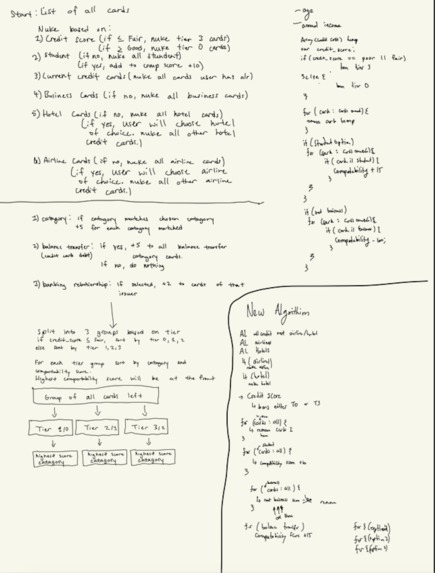 Start: List of all cards
Nuke based on:
1) Credit score (if ≤ Fair, nuke tier 3 cards)
(if ≥ Good, nuke tier 0 cards)
2) Student (if no, nuke all student)
(if yes, add to comp score +10)
3) Current credit cards (nuke all cards user has already)
4) Business Cards (if no, nuke all business cards)
5) Hotel Cards (if no, nuke all hotel cards)
(if yes, user will choose hotel
of choice, nuke all other hotel
credit cards.)
6) Airline Cards (if no, nuke all airline cards)
(if yes, user will choose airline
of choice, nuke all other airline
credit cards.)
1) category: if category matches chosen category
+5 for each category matched
2) balance transfer: if yes, +5 to all balance transfer
(credit card debt) category cards.
if no, do nothing
3) banking relationship: if selected, +2 to cards of that
issuer
Split into 3 groups based on tier
if credit score ≤ fair, sort by tier 0, 1, 2
else sort by tier 1, 2, 3
For each tier group sort by category and
compatibility score.
Highest compatibility score will be at the front
Group of all cards left
Tier 1/0
Tier 2/1
Tier 3/2
highest score
category
highest score
category
highest score
category
- age
- annual income
credit_score;
if (credit_score == poor || fair)
tier 3
else {
tier 0
}
for (card :
}
if (student option)
for (card :
if (card is student)
compatibility + 15
}
}
if (not business)
for (card :
if (card is business)
compatibility
}
}
New Algorithm
AL all credit not airline/hotel
AL airlines
AL Hotels
if (airlines)
if (hotel)
→ Credit Score
T0 or T3
for (cards : all) {
↳ remove cards
}
for (cards : all) {
↳ compatibility score
}
for (cards : all) {
↳ not business
remove
}
for (balance transfer)
compatibility score +15
for (option 1)
for (option 2)
for (option 3)